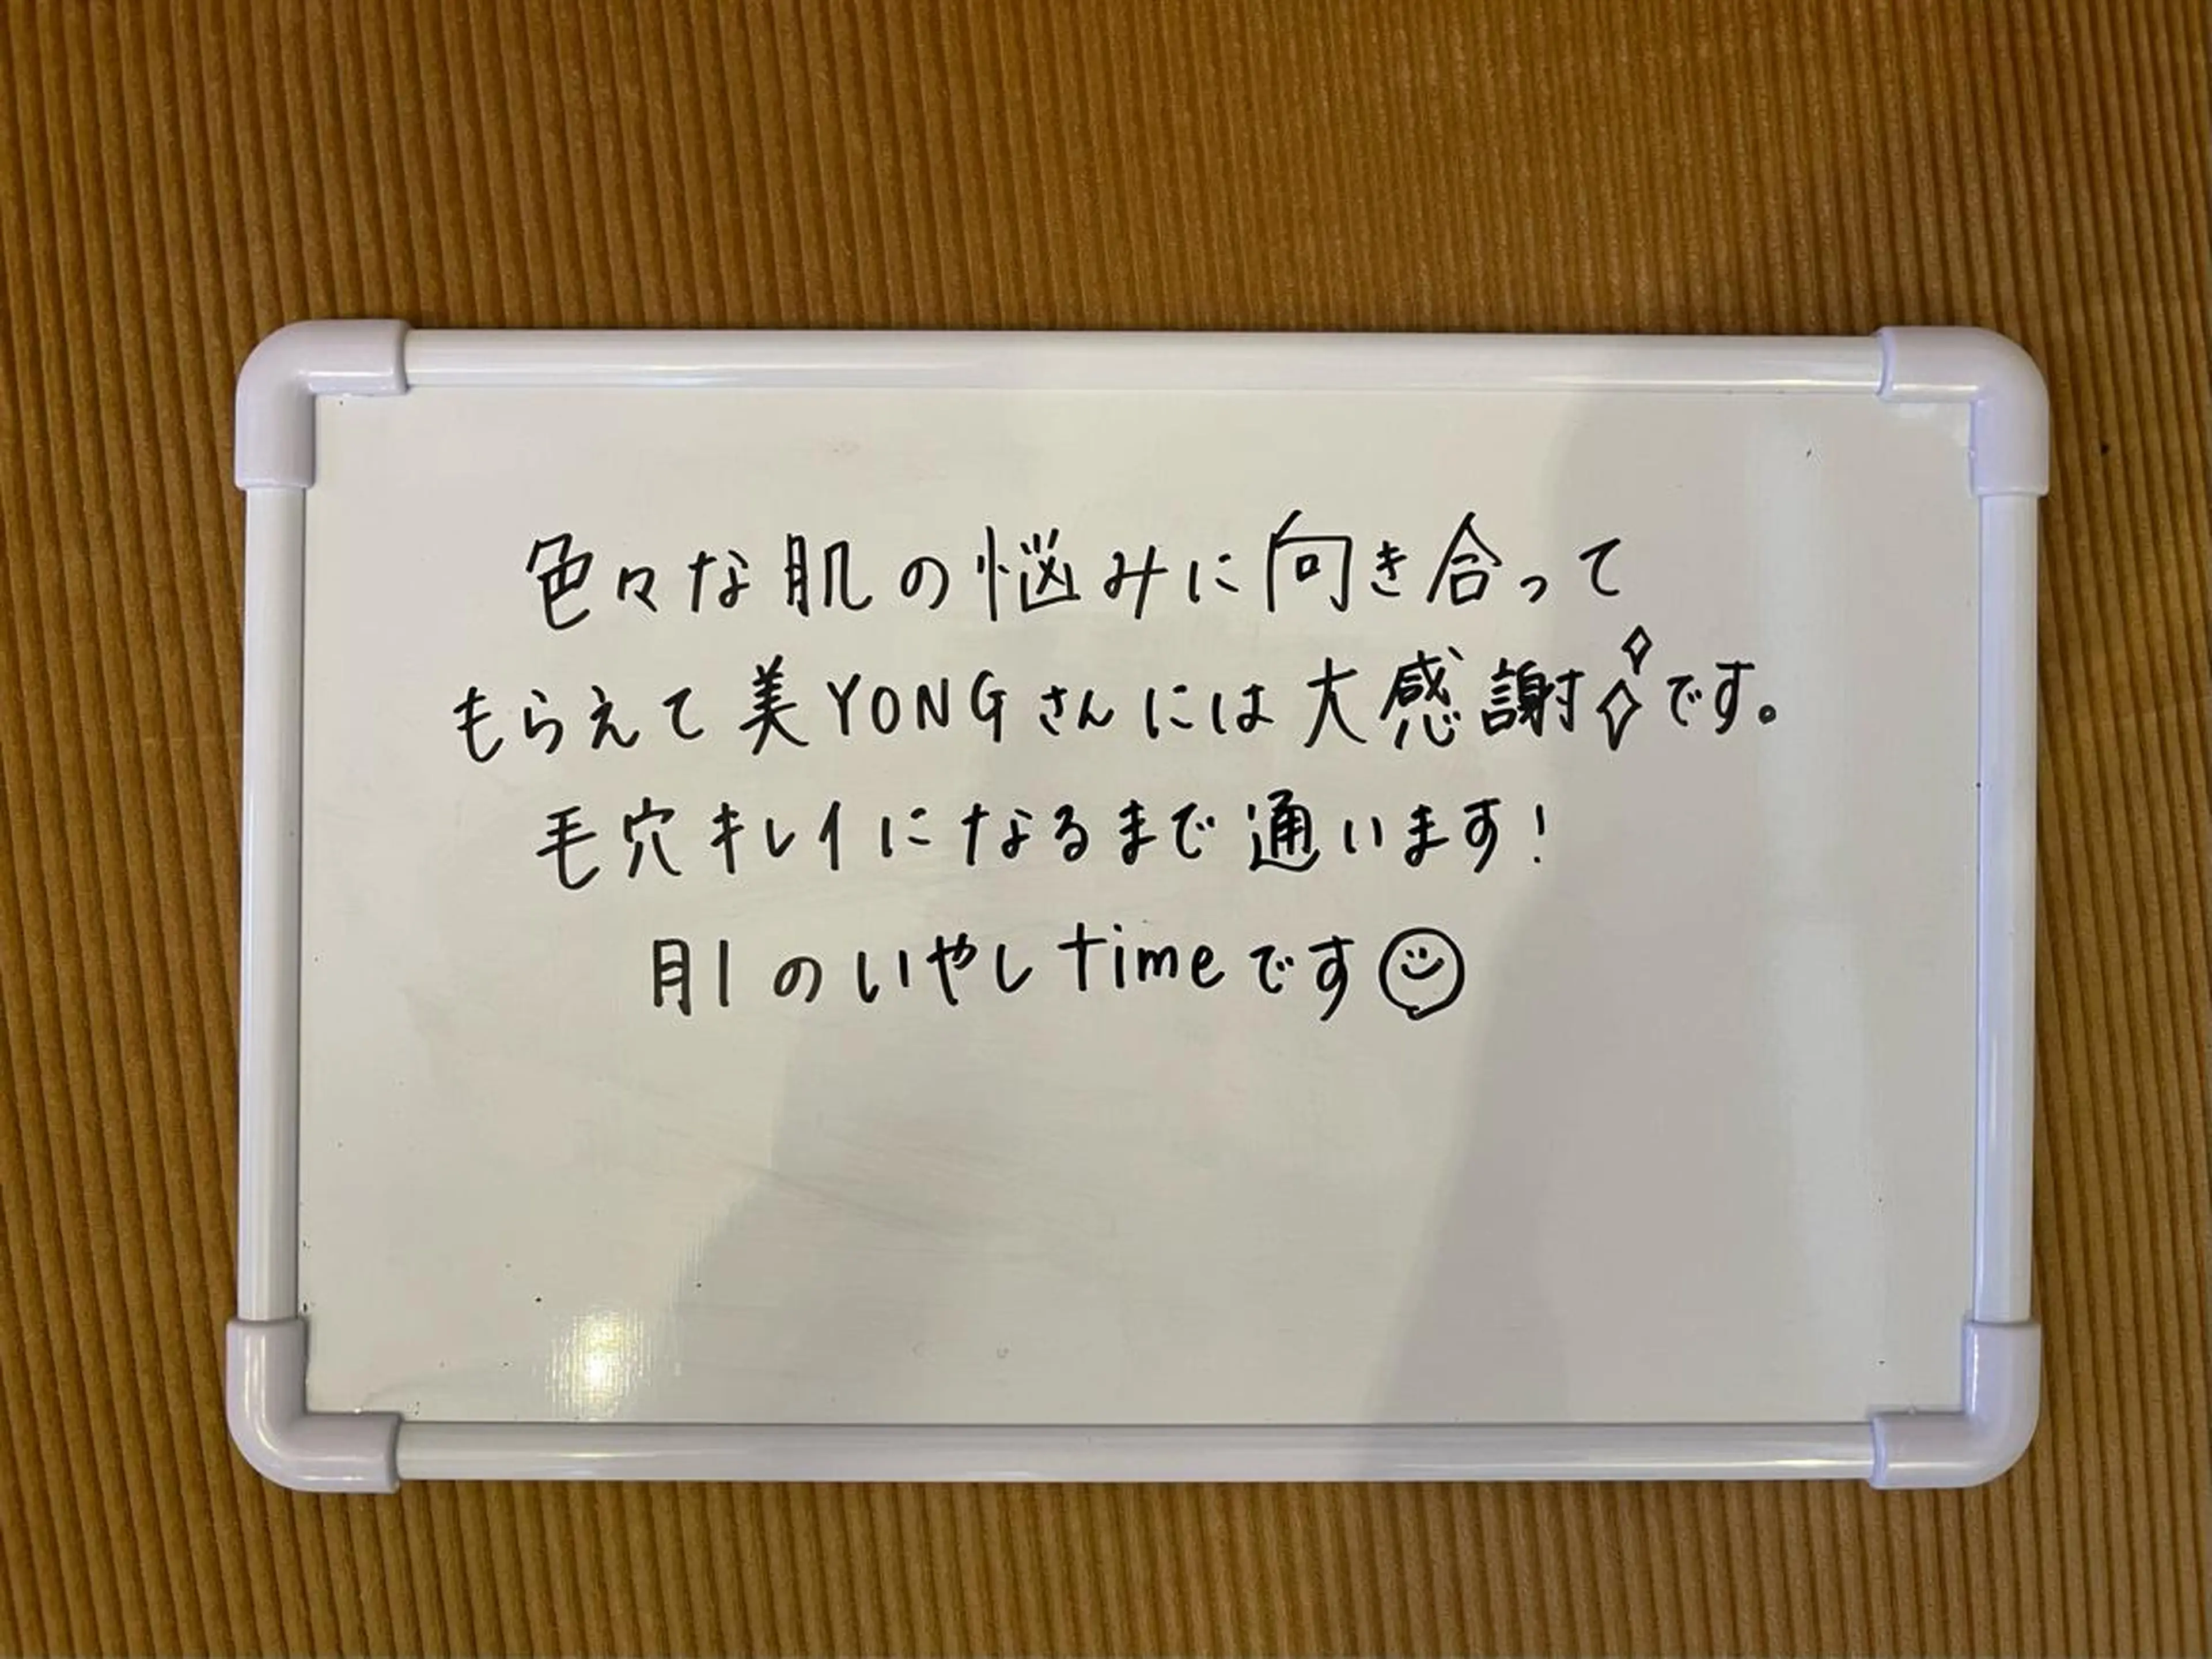 色々な肌の悩みに向き合って
もらえて美YONGさんには大感謝です。
毛穴キレイになるまで通います!
肌のいやしtimeです